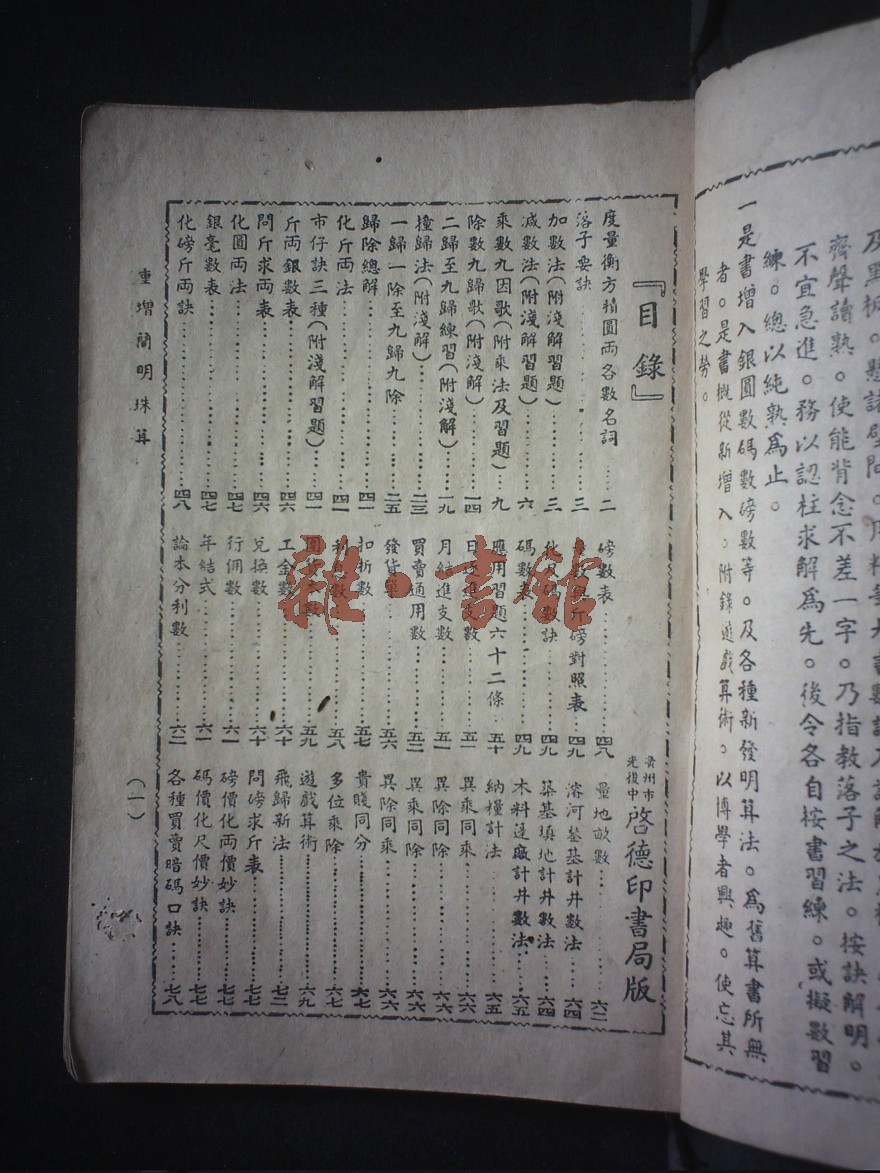 及黑板。懸諸壁間。
齊聲讀熟。使能背念不差一字。乃指教落子之法。按訣解明。
不宜急進。務以認柱求解爲先。後令各自按書習練。或擬數習
練。總以純熟爲止。
一是書增入銀圓數碼數磅數等。及各種新發明算法。爲舊算書所無
者。是書概從新增入。附錄遊戲算術。以博學者興趣。使忘其
學習之勞。
『目錄』
光復中
啓德印書局版
度量衡方積圓両各數名詞……二
落子要訣……三
加數法(附淺解習題)……三
減數法(附淺解習題)……六
乘數九因歌(附乘法及習題)…九
除數九歸歌(附淺解)……一四
二歸至九歸練習(附淺解)……一九
撞歸法(附淺解)……二三
一歸一除至九歸九除……二五
歸除總解……四一
化斤両法……四一
市仔訣三種(附淺解習題)…四一
斤両銀數表……四六
問斤求両表……四六
化圓両法……四七
銀毫數表……四七
化磅斤両訣……四八
磅數表……四八
斤磅對照表……四九
碼數訣……四九
碼數表……四九
應用習題六十二條…五十
進支數……五一
月結進支數……五一
買賣通用數……五二
發貨單……五六
扣折數……五七
五八
五九
工金數……六十
兌換數……六十
行佣數……六一
年結式……六一
論本分利數……六二
量地畝數……六二
濬河鍫基計井數法……六四
築基填地計井數法……六四
木料蓬廠計井數法…六五
納糧計法……六五
異乘同除……六六
異除同除……六六
異乘同除……六六
異除同乘……六六
貴賤同分……六七
多位乘除……六七
遊戲算術……六九
飛歸新法……七二
問磅求斤表……七七
磅價化両價妙訣……七七
碼價化尺價妙訣……七七
各種買賣暗碼口訣……七八
重增簡明珠算
(一)
雜·書館